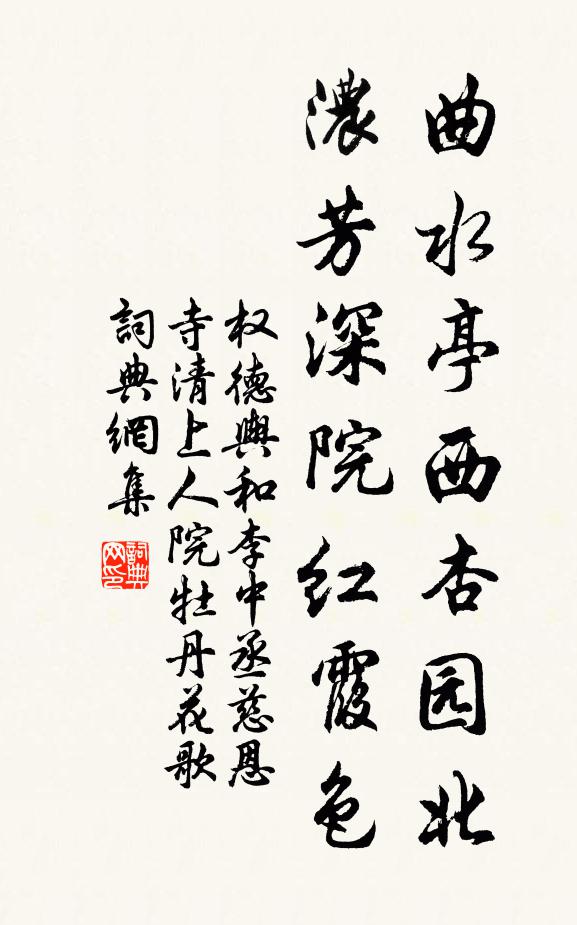 曲水亭西杏园北
濃芳深院红霞色
权德輿和李中丞慈恩
寺清上人院牡丹花歌
詞典網集
詞典网印